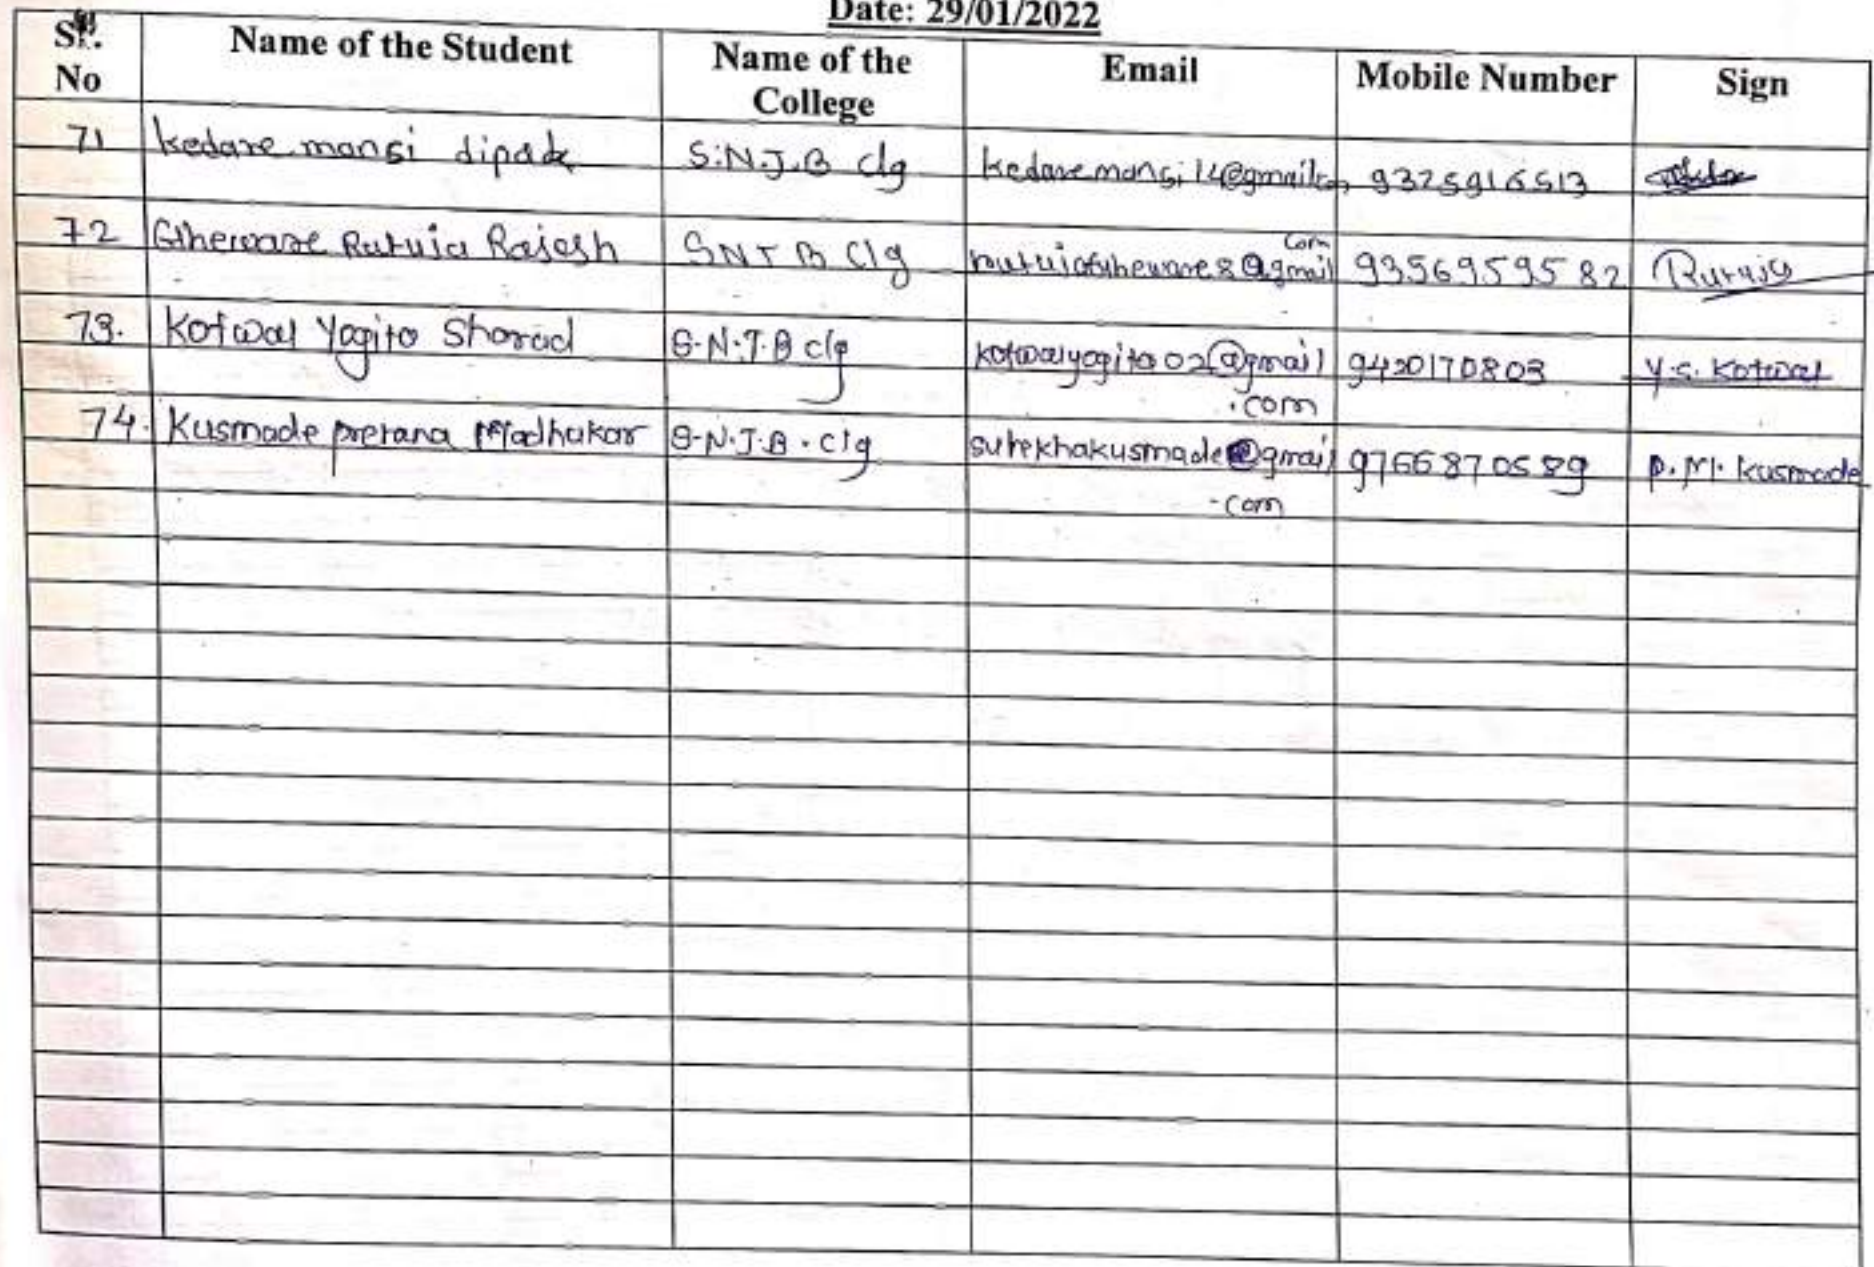 Date: 29/01/2022
Sr. No Name of the Student Name of the College Email Mobile Number Sign
71 kedare mansi dipak S.N.J.B clg kedaremansi14@gmail.com 9325916513
72 Rutuja Rajesh SNJB Clg 9356959582 Rutuja
73. Kotwal Yogita Sharad S.N.J.B clg kotwalyogita02@gmail.com 9420170803 Y.S. Kotwal
74. Kusmade prerana Madhukar S.N.J.B. clg surekhakusmade@gmail.com 9766870589 P.M. Kusmade